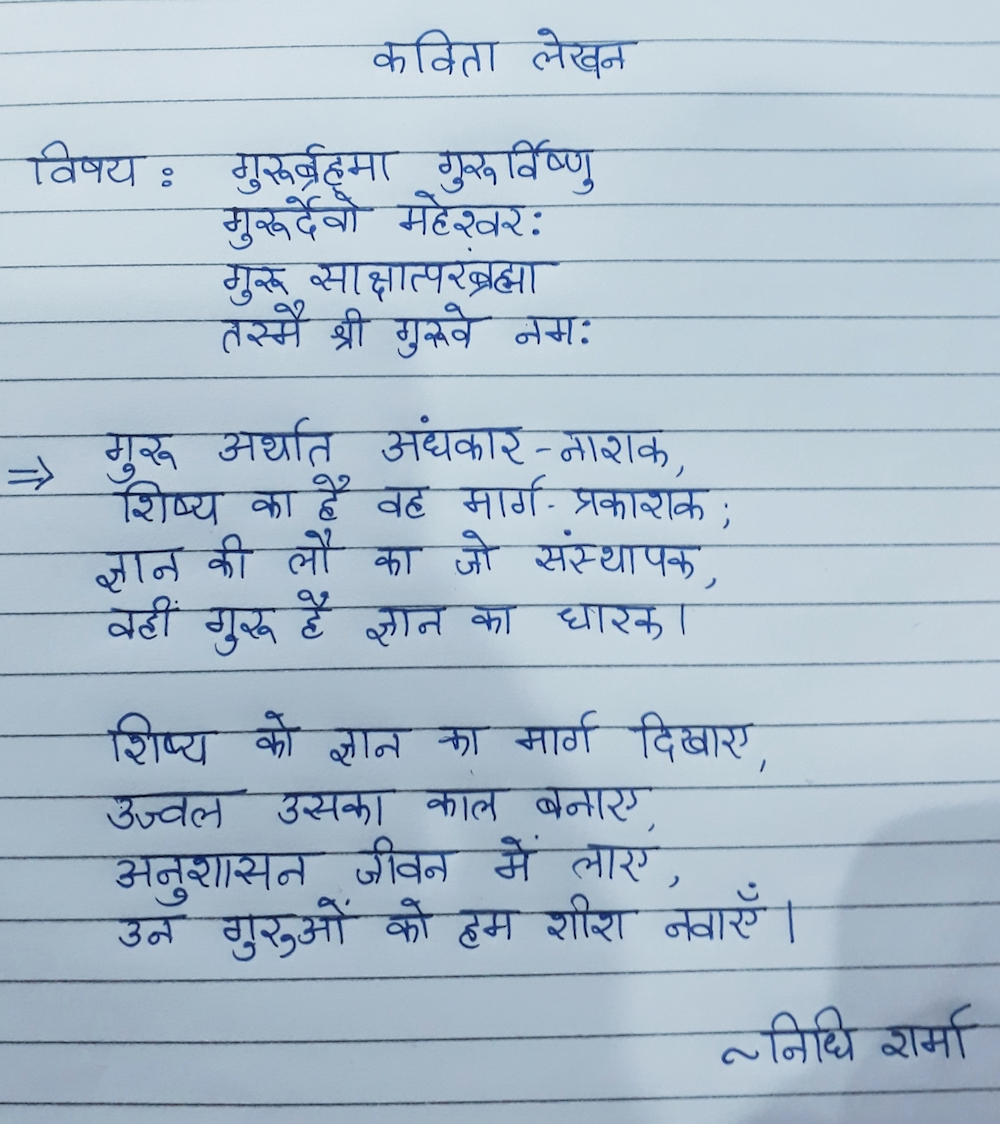 कविता लेखन
विषय : गुरुर्ब्रह्मा गुरुर्विष्णु
गुरुर्देवो महेश्वर:
गुरु साक्षात्परंब्रह्मा
तस्मै श्री गुरुवे नम:
⇒ गुरु अर्थात अंधकार-नाशक,
शिष्य का है वह मार्ग-प्रकाशक;
ज्ञान की लौ का जो संस्थापक,
वहीं गुरु है ज्ञान का धारक।
शिष्य को ज्ञान का मार्ग दिखाए,
उज्वल उसका काल बनाए,
अनुशासन जीवन में लाए,
उन गुरुओं को हम शीश नवाएँ।
~निधि शर्मा